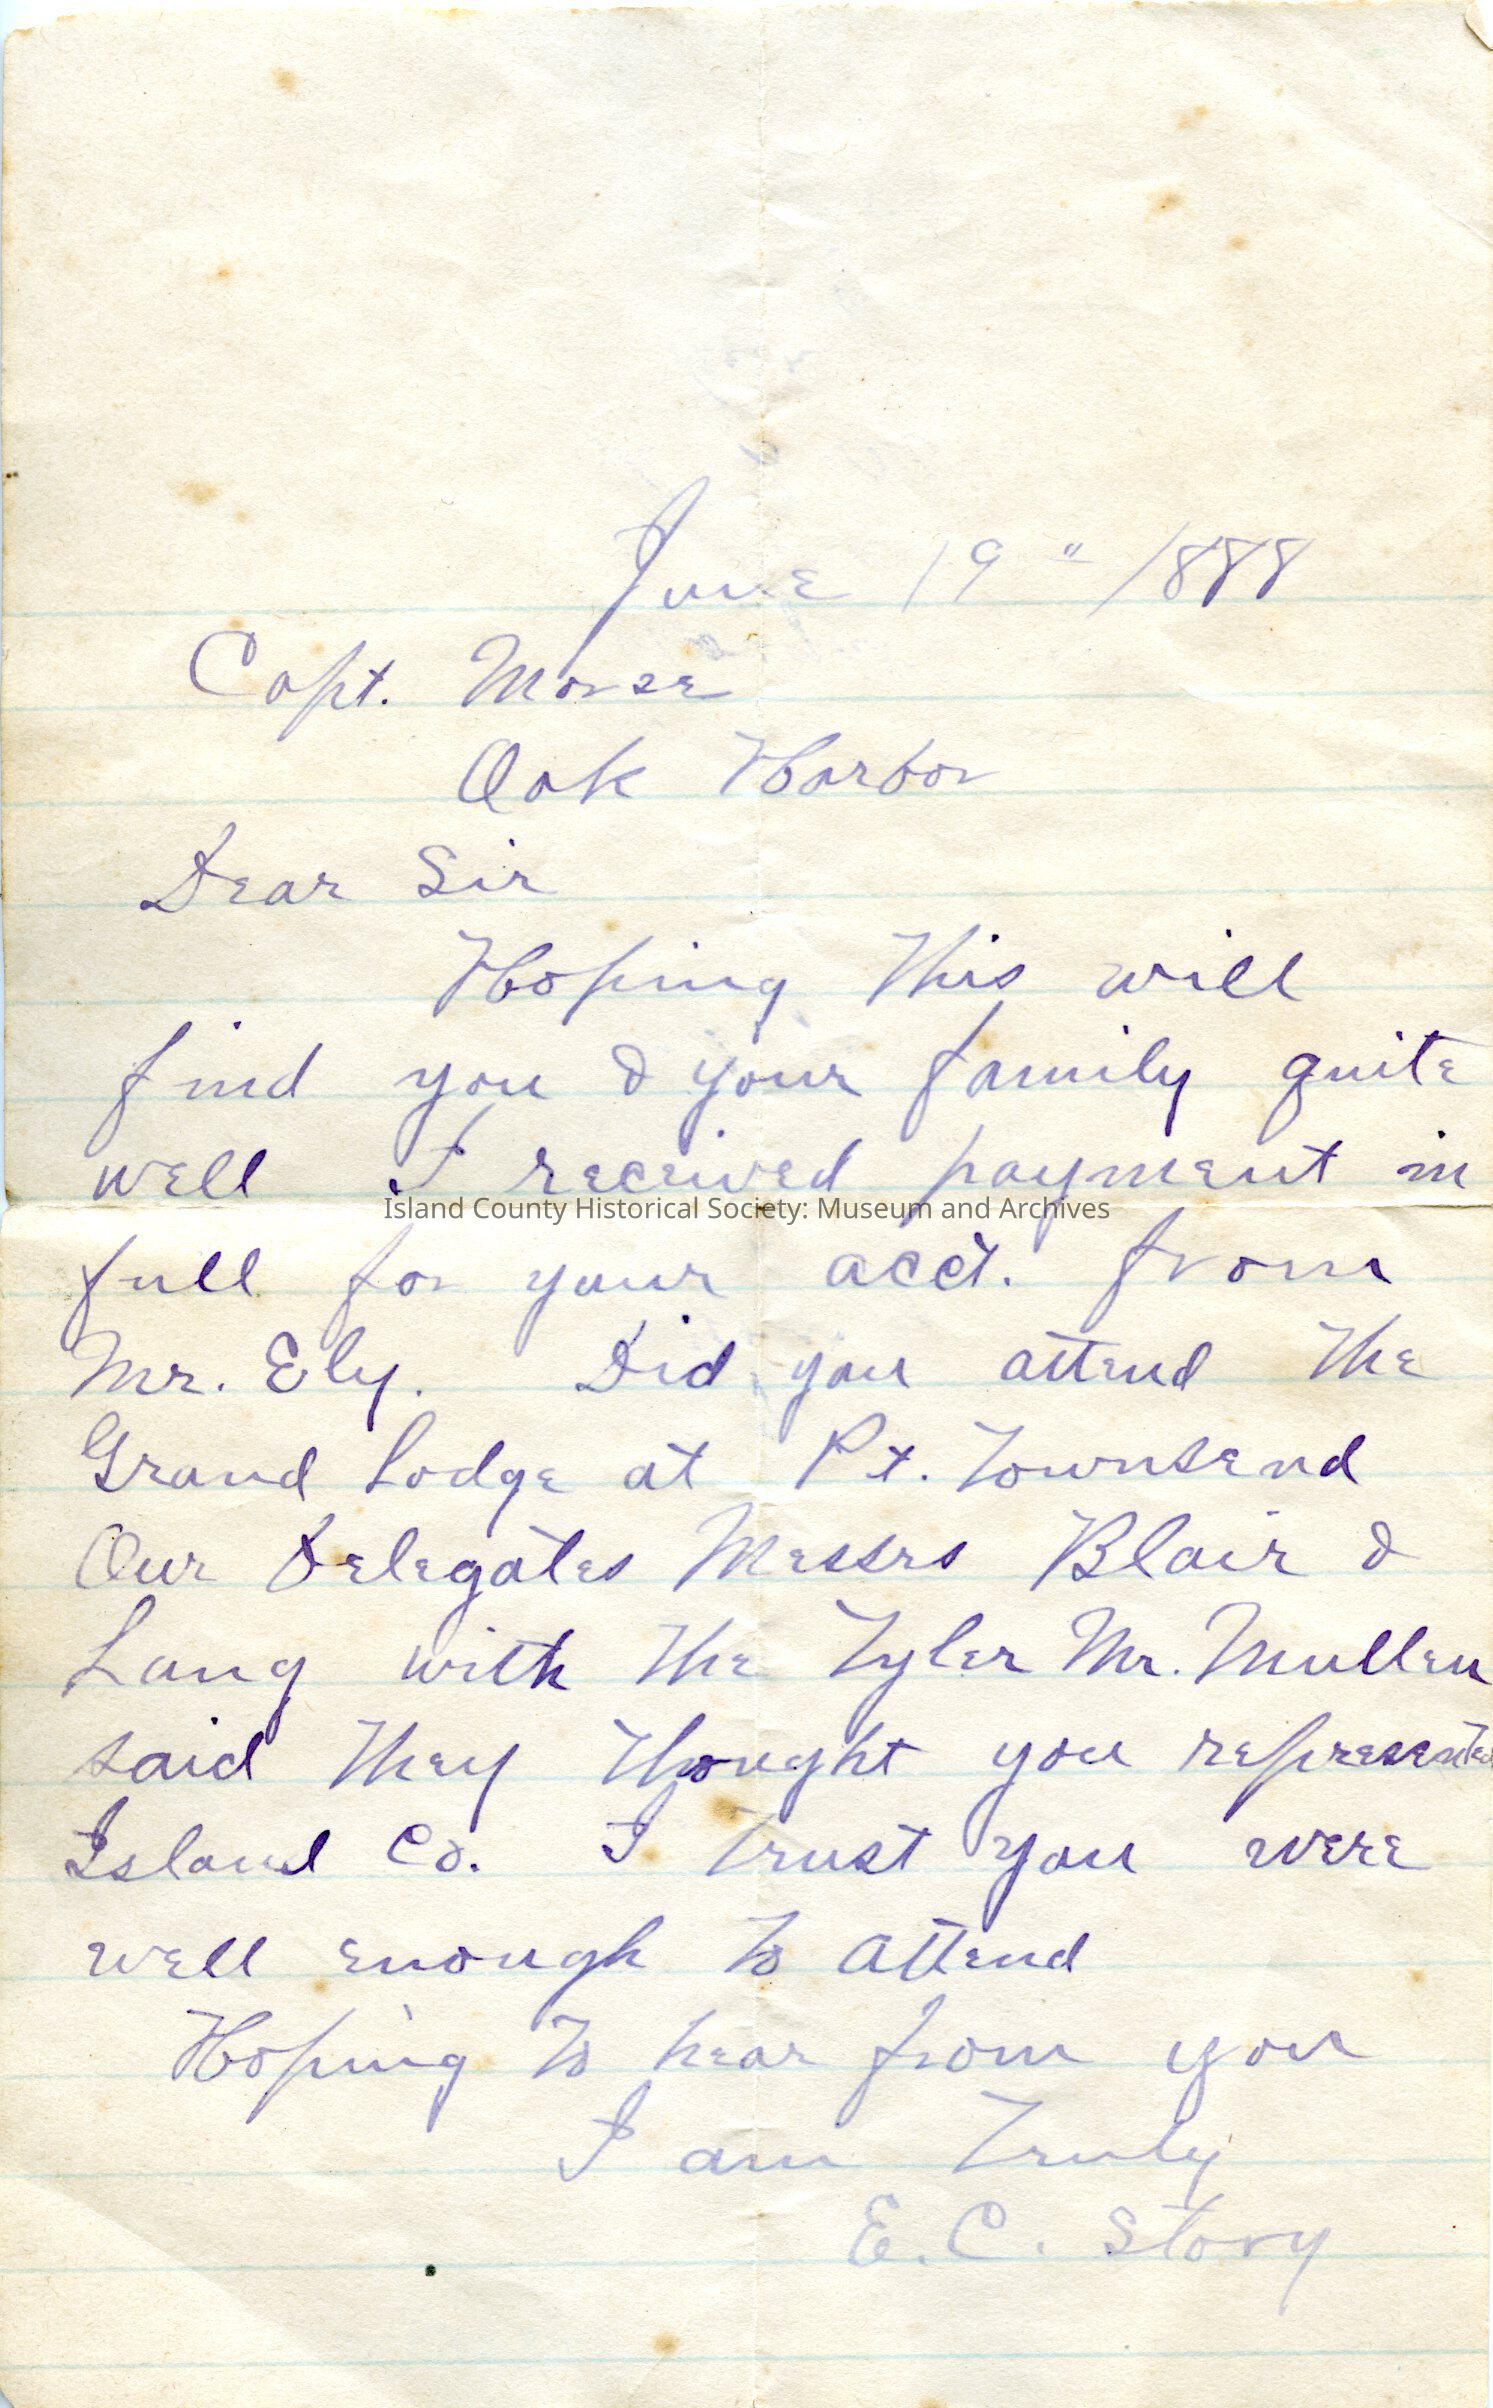 June 19" 1888
Capt. Morse
Oak Harbor
Dear Sir
Hoping this will
find you & your family quite
well I received payment in
Island County Historical Society: Museum and Archives
full for your acct. from
Mr. Ely. Did you attend the
Grand Lodge at Pt. Townsend
Our Delegates Messrs Blair &
Lang with the Tyler Mr. Mullen
said they thought you represented
Island Co. I trust you were
well enough to attend
Hoping to hear from you
I am Truly
E. C. Story